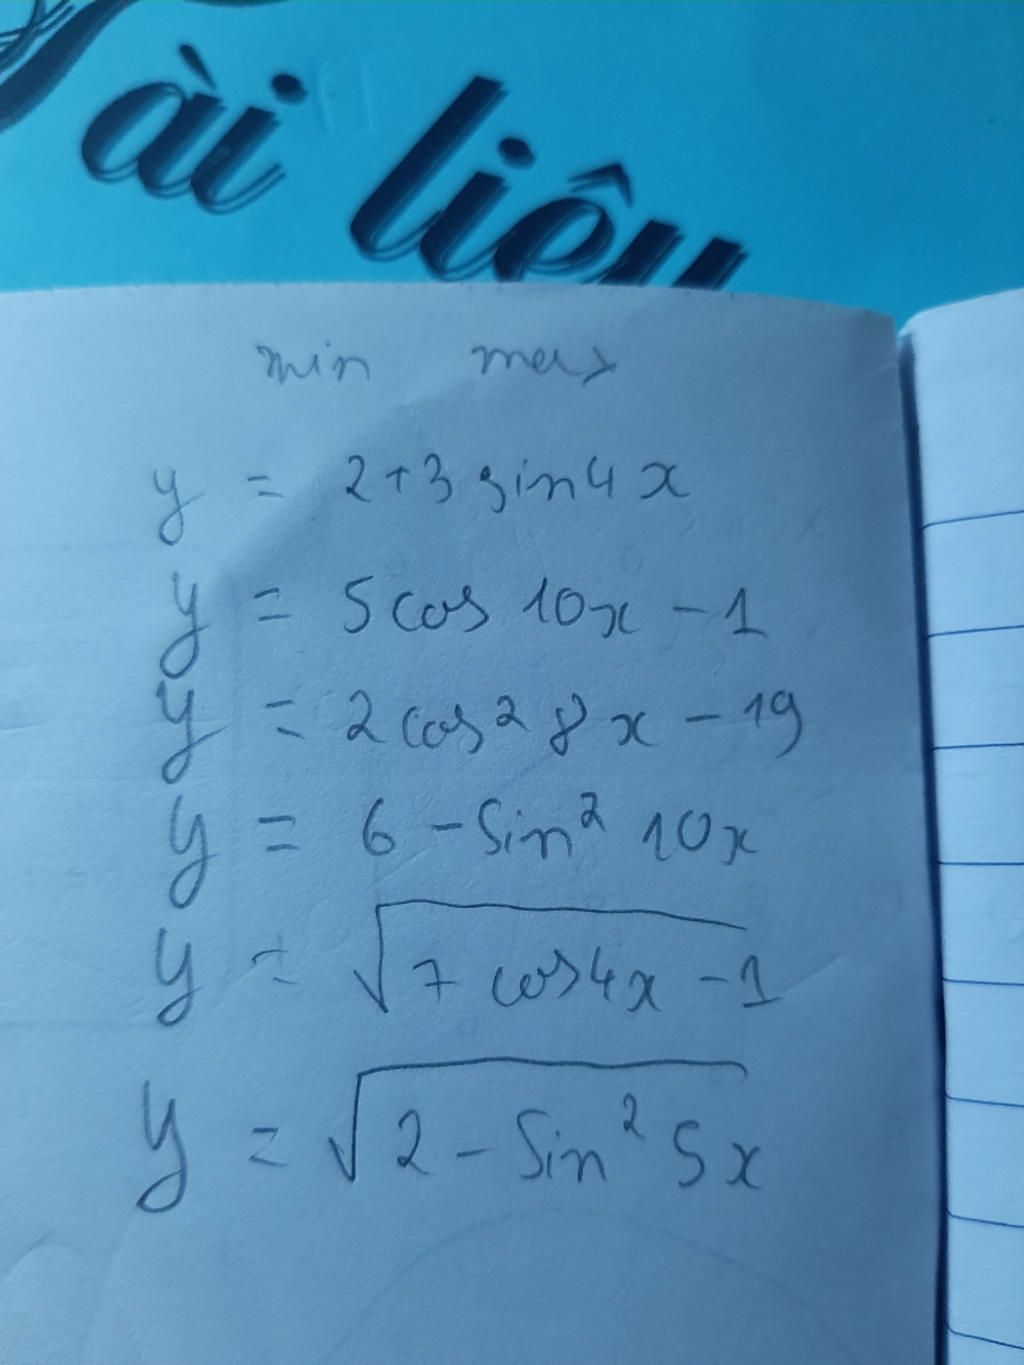 ài liệu
min max
y = 2+3 sin4x
y = 5cos 10x - 1
y = 2cos² 8x - 19
y = 6 - sin² 10x
y = √7 cos4x - 1
y = √2 - Sin² 5x